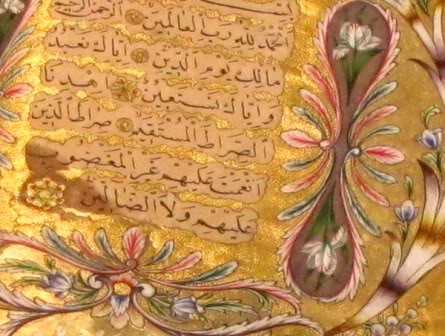 لحمد لله رب العالمين الرحمن الرحيم
مالك يوم الدين اياك نعبد
واياك نستعين اهدنا
الصراط المستقيم صراط الذين
انعمت عليهم غير المغضوب
عليهم ولا الضالين